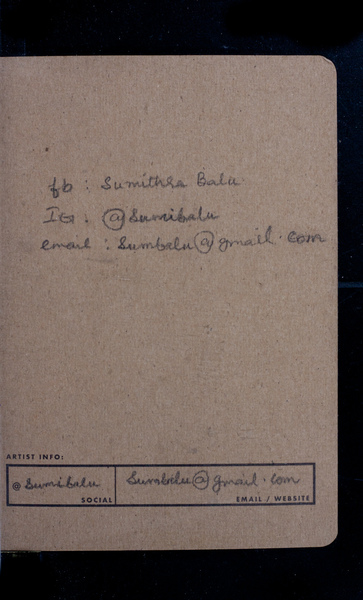 fb : Sumithra Balu
IG : @Sumibalu
email : Sumbalu@gmail.com
ARTIST INFO:
@Sumibalu
SOCIAL
Sumbalu@gmail.com
EMAIL / WEBSITE